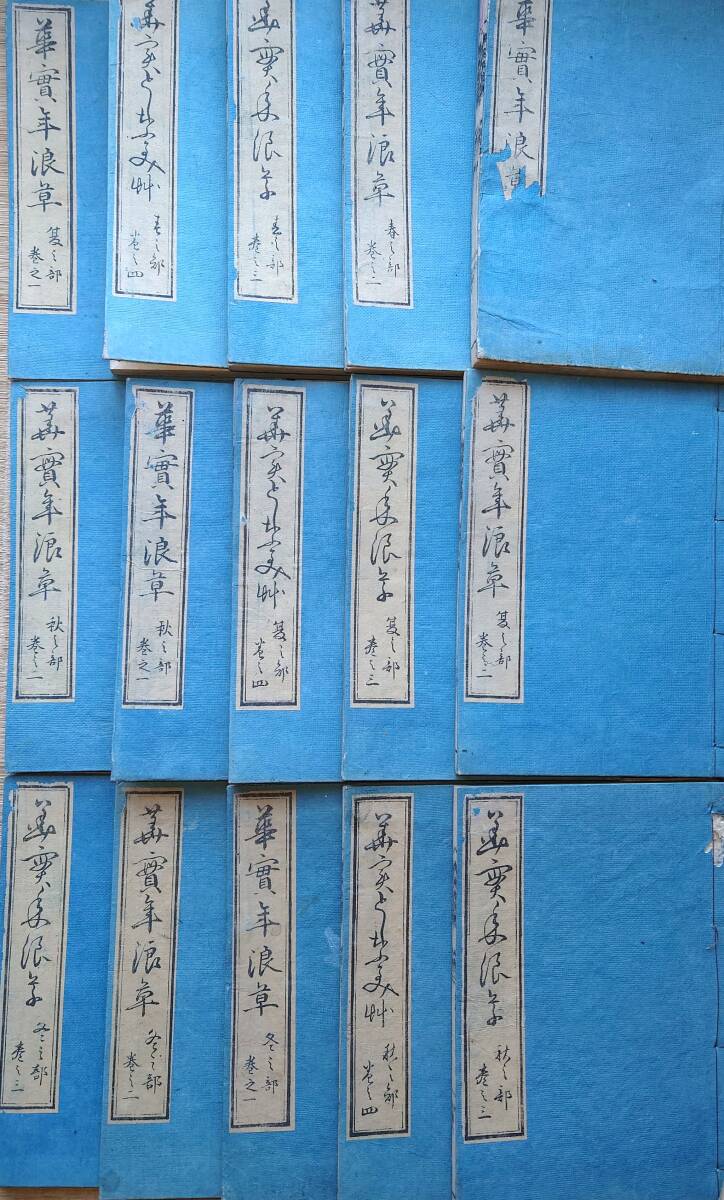 華實年浪草
華實年浪草
春之部
巻之二
華實年浪草
春之部
巻之三
華実としな美艸
春之部
巻之四
華實年浪草
夏之部
巻之一
華實年浪草
夏之部
巻之二
華實年浪草
夏之部
巻之三
華実としな美艸
夏之部
巻之四
華實年浪草
秋之部
巻之一
華實年浪草
秋之部
巻之二
華實年浪草
秋之部
巻之三
華実としな美艸
秋之部
巻之四
華實年浪草
冬之部
巻之一
華實年浪草
冬之部
巻之二
華實年浪草
冬之部
巻之三